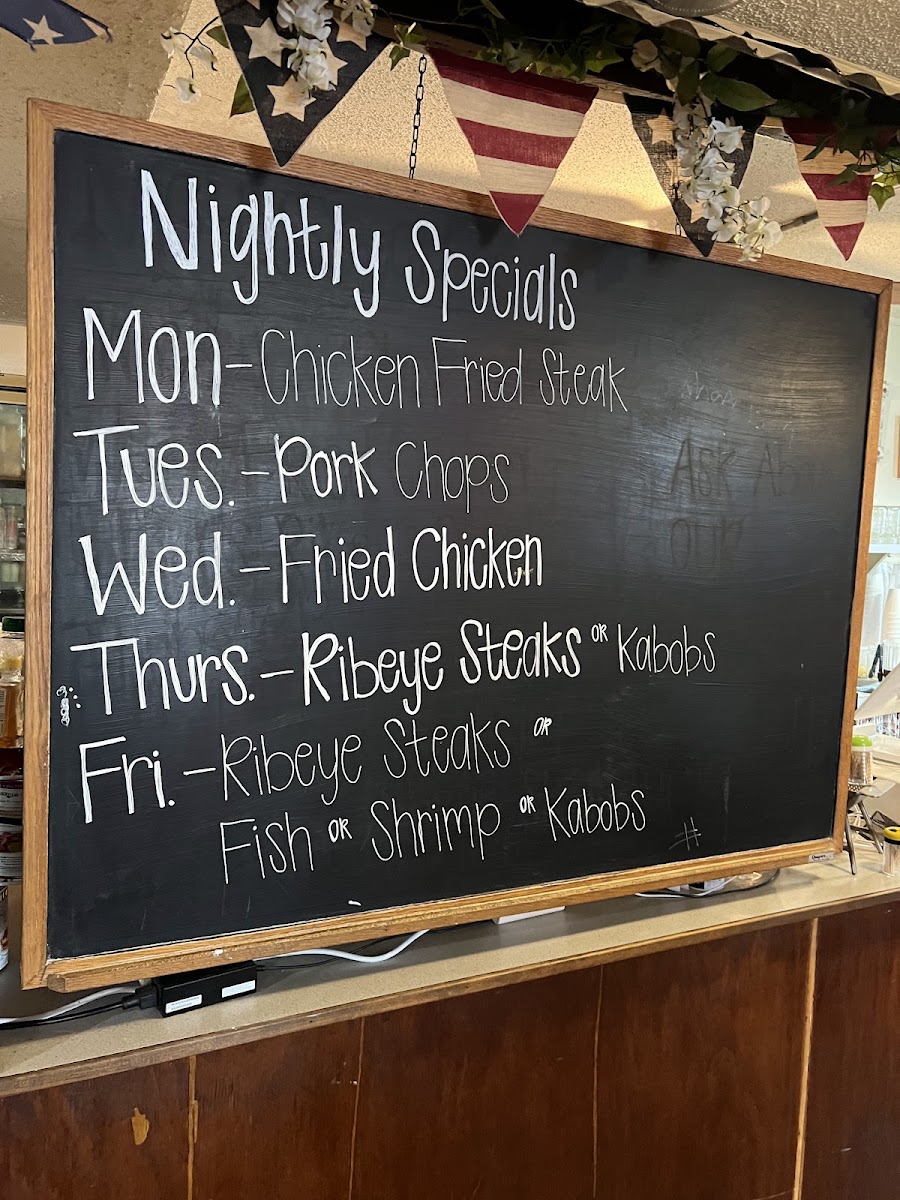 Nightly Specials
Mon-Chicken Fried Steak
Tues.-Pork Chops
Wed.-Fried Chicken
Thurs.-Ribeye Steaks OR Kabobs
Fri.-Ribeye Steaks OR
Fish OR Shrimp OR Kabobs
#
ASK